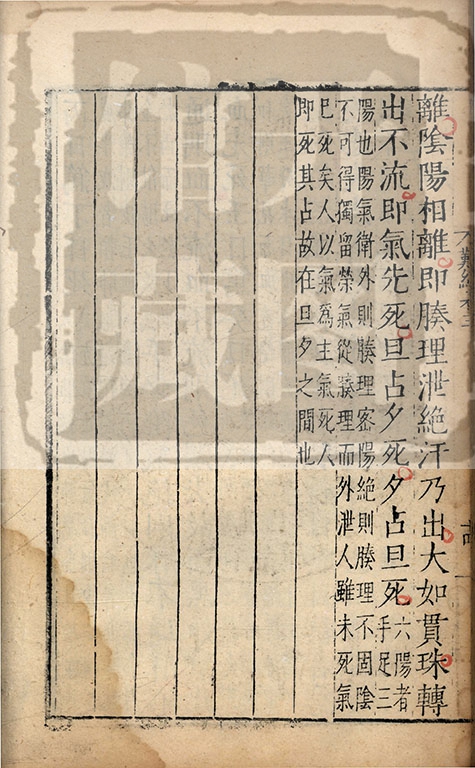 離陰陽相離即腠理泄絶汗乃出大如貫珠轉
出不流即氣先死旦占夕死夕占旦死
六陽者
手足三
陽也陽氣衛外則腠理密陽絶則腠理不固陰
不可得獨留榮氣從腠理而外泄人雖未死氣
已死矣人以氣爲主氣死人
即死其占故在旦夕之間也